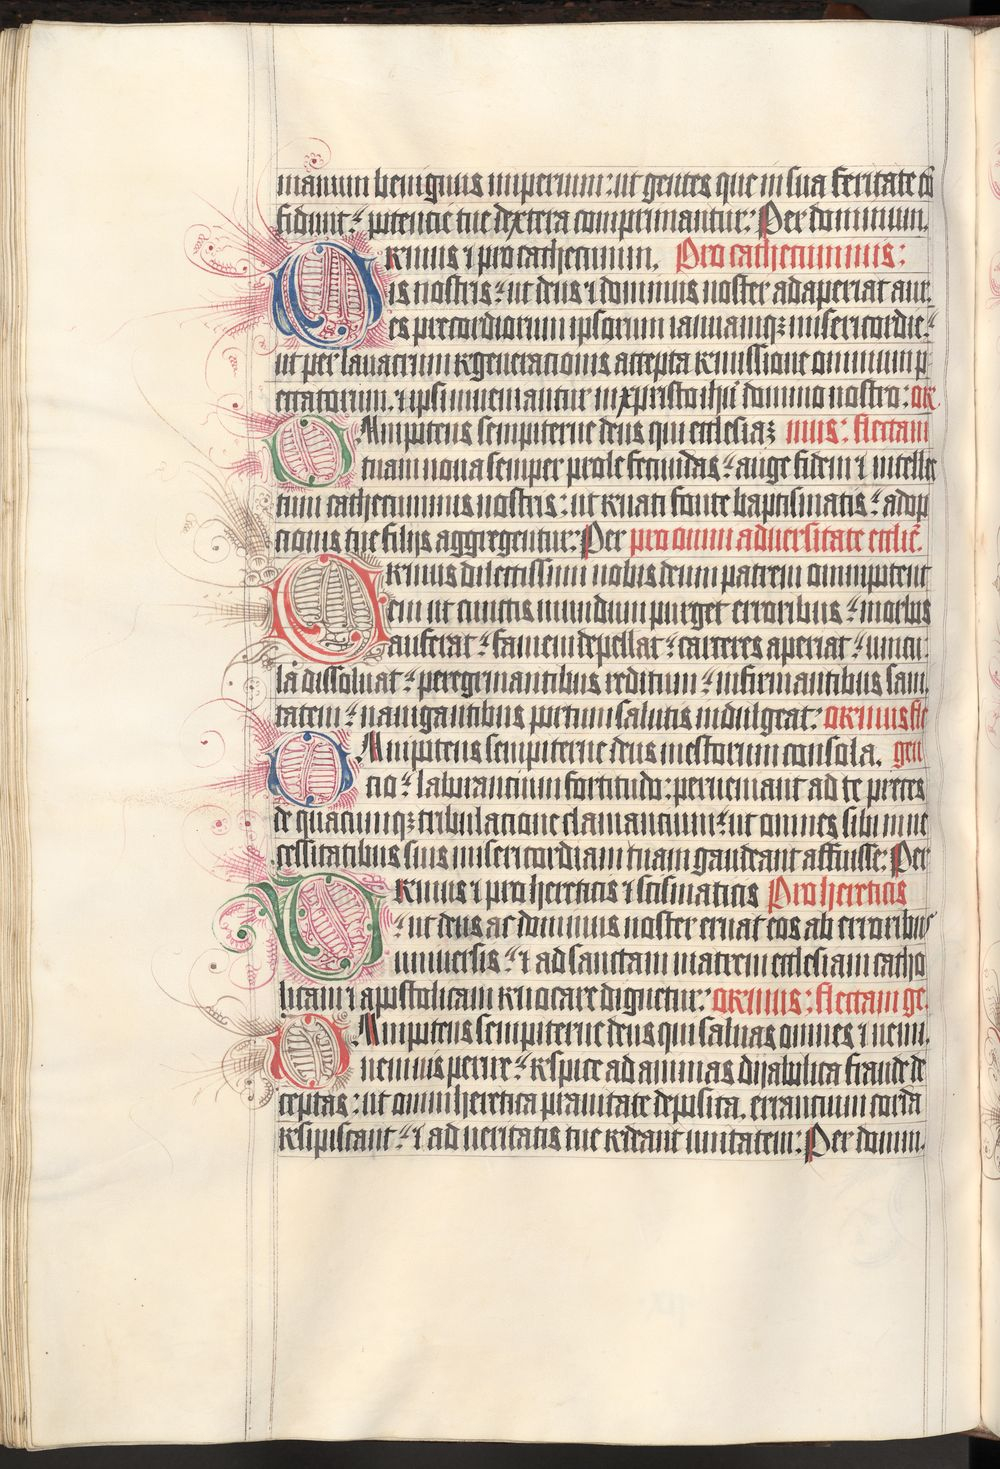 manum benignus imperium: ut gentes que in sua feritate cō
fidunt: potencie tue dextera comprimantur: Per dominum.
Oremus ⁊ pro cathecuminis. Pro cathecuminis:
nis nostris: ut deus ⁊ dominus noster adaperiat aur
es precordiorum ipsorum ianuamqꝫ misericordie:
ut per lauacrum regeneracionis accepta remissione omnium p
eccatorum. ⁊ ipsi inueniantur in xpristo ihū domino nostro: ore
OMnipotens sempiterne deus qui ecclesiaꝫ mus: flectam
tuam noua semper prole fecundas: auge fidem ⁊ intelle
ctum cathecuminis nostris: ut renati fonte baptismatis: adop
cionis tue filijs aggregentur: Per pro omni aduersitate ecclie.
Oremus dilectissimi nobis deum patrem omnipotent
em ut cunctis mundum purget erroribus: morbos
auferat: famem depellat: carceres aperiat: uincu
la dissoluat: peregrinantibus reditum: infirmantibus sani
tatem: nauigantibus portum salutis indulgeat: oremus fle
OMnipotens sempiterne deus mestorum consola. gen
cio: laborancium fortitudo: perueniant ad te preces
de quacumqꝫ tribulacione clamancium: ut omnes sibi in ne
cessitatibus suis misericordiam tuam gaudeant affuisse: Per
Oremus ⁊ pro hereticis ⁊ scismaticis Pro hereticis
: ut deus ac dominus noster eruat eos ab erroribus
uniuersis: ⁊ ad sanctam matrem ecclesiam catho
licam ⁊ apostolicam reuocare dignetur: oremus: flectam ge.
OMnipotens sempiterne deus qui saluas omnes ⁊ nemi.
neminis perire: respice ad animas dyabolica fraude de
ceptas: ut omni heretica prauitate deposita. errancium corda
resipiscant: ⁊ ad ueritatis tue redeant unitatem: Per domin.